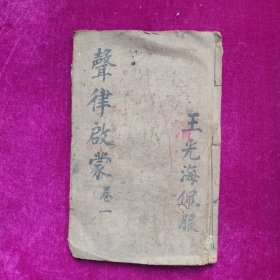 聲律啟蒙 卷一
王光海佩服